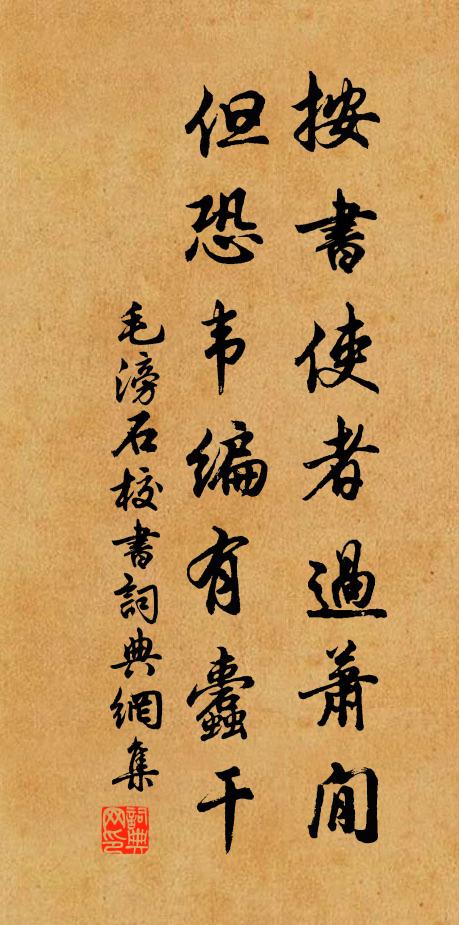 按書使者過蕭閒
但恐韦编有蠹干
毛滂石校書詞典網集
詞典网印